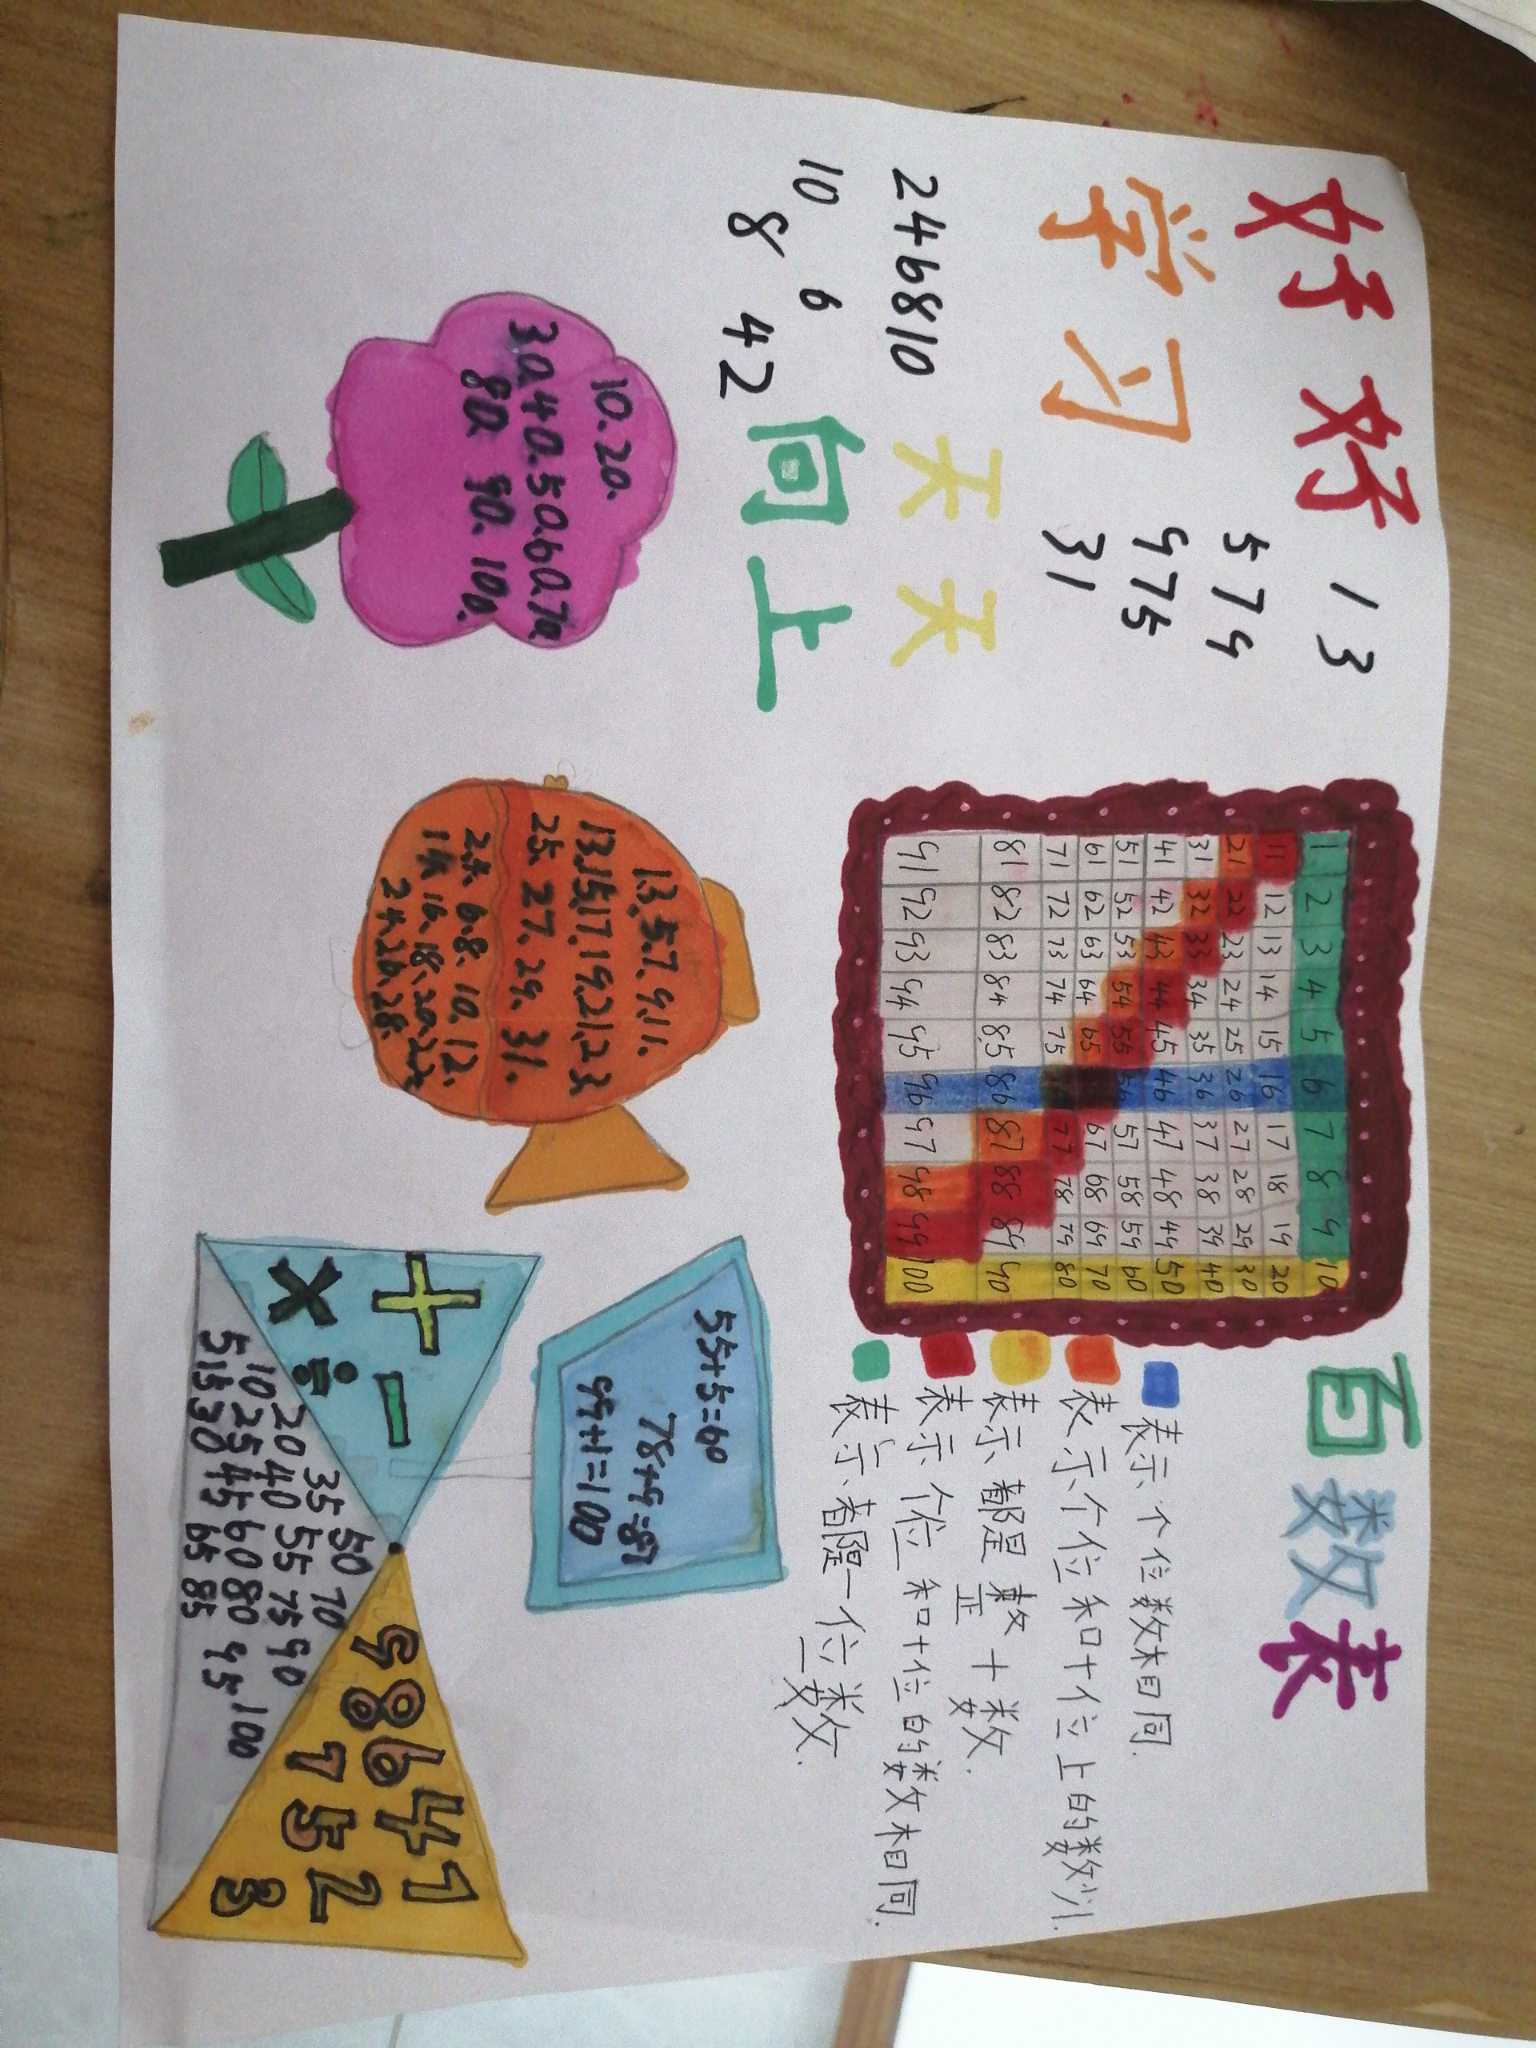 好好
1 3
5 7 9
学习
9 7 5
3 1
2 4 6 8 10
天天
10 8 6 4 2
向上
百数表
1 2 3 4 5 6 7 8 9 10
11 12 13 14 15 16 17 18 19 20
21 22 23 24 25 26 27 28 29 30
31 32 33 34 35 36 37 38 39 40
41 42 43 44 45 46 47 48 49 50
51 52 53 54 55 56 57 58 59 60
61 62 63 64 65 67 68 69 70
71 72 73 74 75 77 78 79 80
81 82 83 84 85 86 87 88 89 90
91 92 93 94 95 96 97 98 99 100
表示个位数相同.
表示个位和十位上的数少1.
表示都是整十数.
表示个位和十位的数相同.
表示都是一位数.
10.20.
30.40.50.60.70
80 90.100.
1.3.5.7.9.11.
13.15.17.19.21.23
25.27.29.31.
2.4.6.8.10.12.
14.16.18.20.22.
24.26.28.
55+5=60
78+9=87
99+1=100
+ -
× ÷
50 70
35
20 40 55 75 90
10 25 45 60 80 100
5 15 30 65 85 95
9 8 6 4 1
7 5 2
3